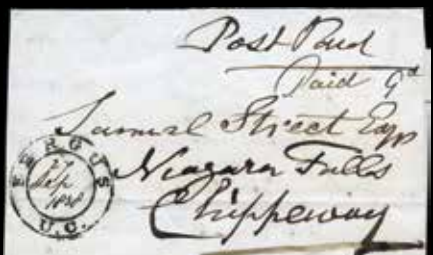 Post Paid
Paid 9d
Samuel Street Esqr
Niagara Falls
Chippeway
FERGUS
27
Sep
1838
U.C.